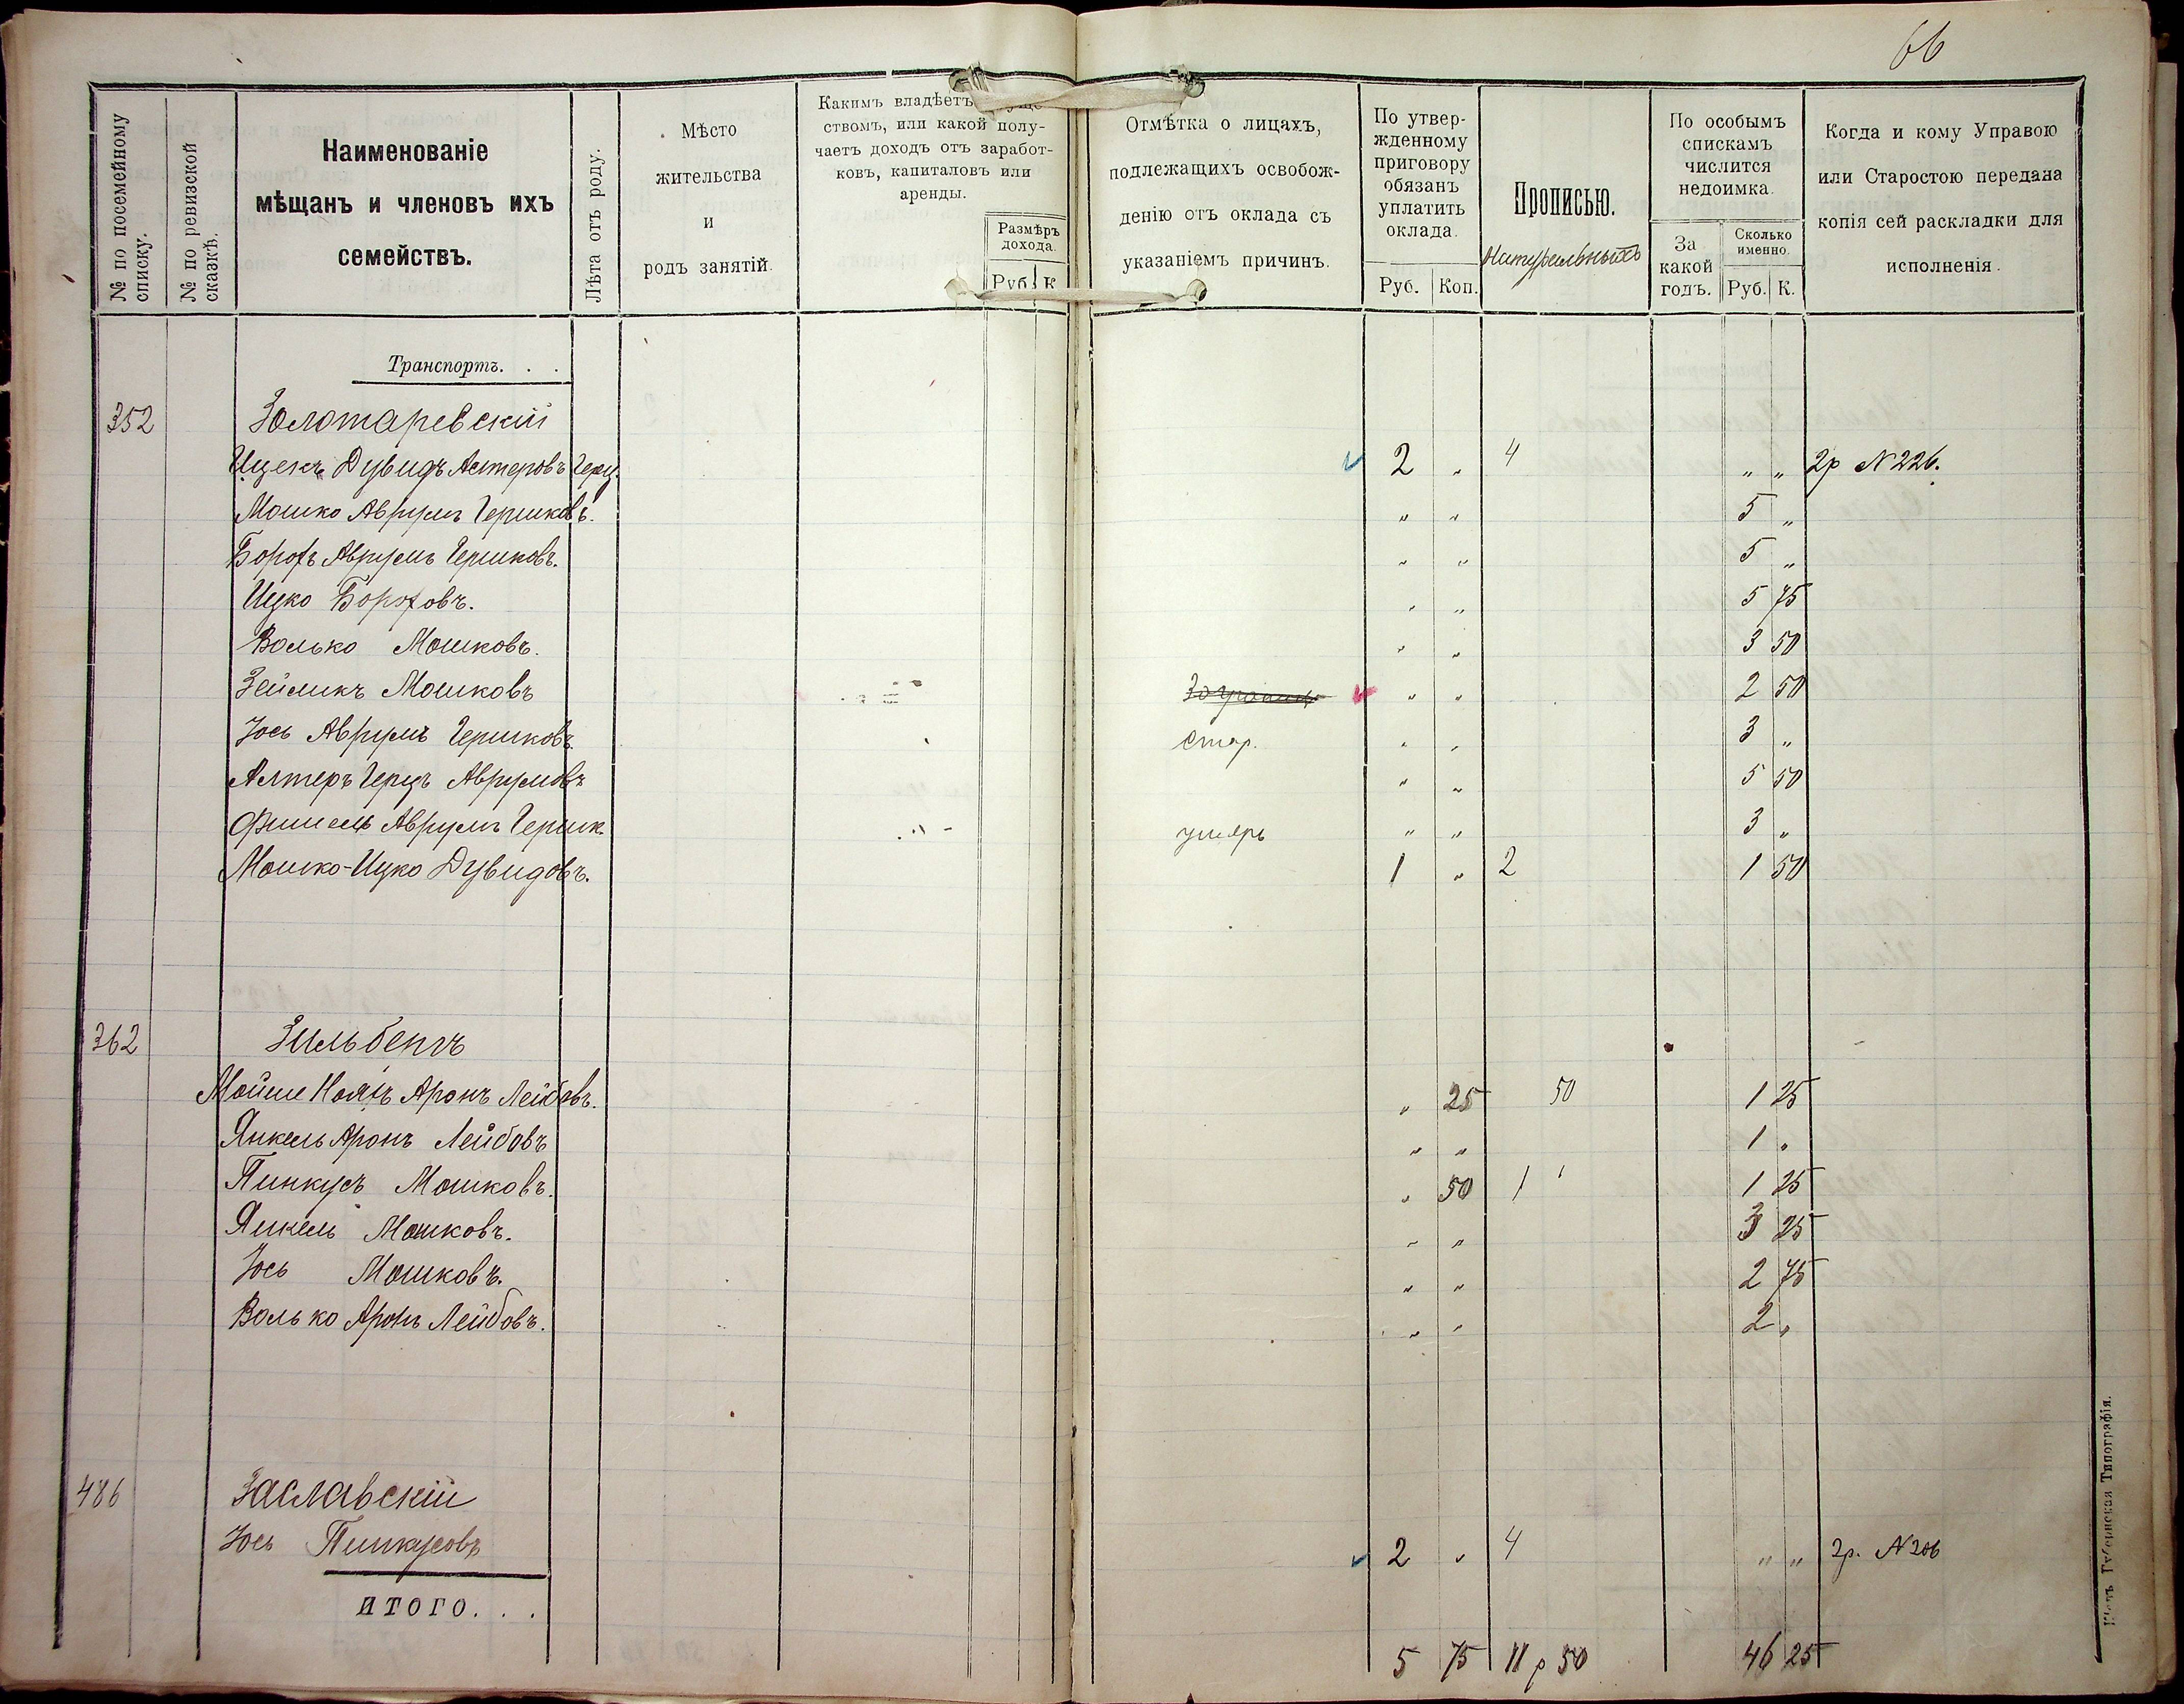 66
№ по посемейному списку.
№ по ревизской сказкѣ.
Наименованіе
мѣщанъ и членовъ ихъ
семействъ.
Лѣта отъ роду.
Мѣсто
жительства
и
родъ занятій.
Какимъ владѣетъ
ствомъ, или какой полу-
чаетъ доходъ отъ заработ-
ковъ, капиталовъ или
аренды.
Размѣръ
дохода.
Руб. К
Отмѣтка о лицахъ,
подлежащихъ освобож-
денію отъ оклада съ
указаніемъ причинъ.
По утвер-
жденному
приговору
обязанъ
уплатить
оклада.
Руб. Коп.
Прописью.
Натуральныхъ
По особымъ
спискамъ
числится
недоимка.
За
какой
годъ.
Сколько
именно.
Руб. К.
Когда и кому Управою
или Старостою передана
копія сей раскладки для
исполненія.
Транспортъ. . .
352 Золотаревскій
Ицекъ Дувидъ Алтеровъ Герц. 2 " 4 " " 2р N 226.
Мошко Аврумъ Гершковъ. " " 5 "
Борохъ Аврумъ Гершковъ. " " 5 "
Ицко Бороховъ. " " 5 75
Волько Мошковъ. " " 3 50
Зейликъ Мошковъ " " 2 50
Іось Аврумъ Гершковъ стар. " " 3 "
Алтеръ Герцъ Аврумовъ " " 5 50
Фишель Аврумъ Гершк. умеръ " " 3 "
Мошко-Ицко Дувидовъ. 1 " 2 1 50
362 Зильберъ
Мойше Аронъ Лейбовъ. " 25 50 1 25
Янкель Аронъ Лейбовъ " " 1 "
Пинкусъ Мошковъ. " 50 1 1 25
Янкель Мошковъ. " " 3 25
Іось Мошковъ. " " 2 75
Волько Аронъ Лейбовъ. " " 2 "
486 Заславскій
Іось Пинкусовъ 2 " 4 " " 2р. N 206
ИТОГО. . .
5 75 11 р 50 46 25
Губернская Типографія.